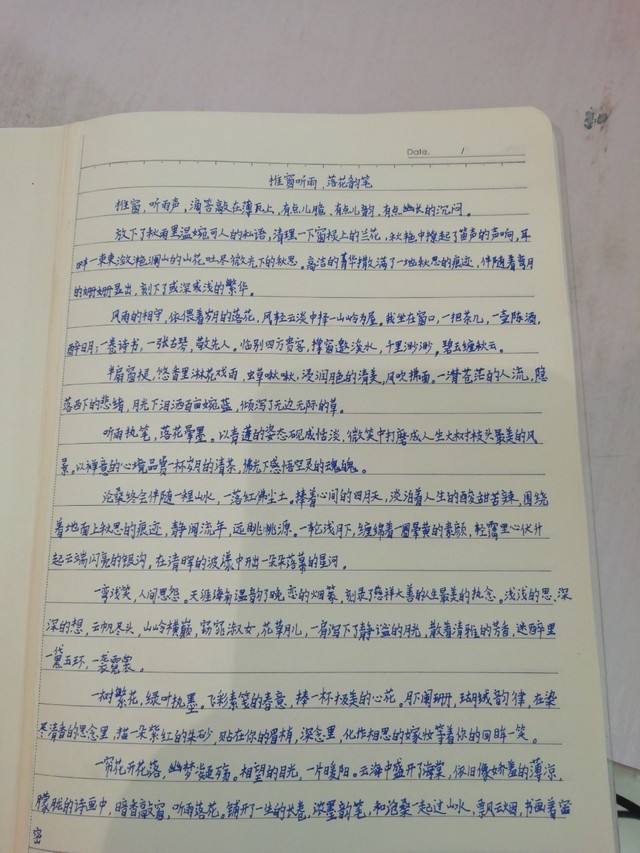 Date.    /
推窗听雨,落花韵笔
推窗,听雨声,滴答敲在薄瓦上,有点儿脆,有点儿韵,有点幽长的沉闷。
放下了秋雨里温婉可人的私语,清理一下窗棂上的兰花,秋艳中撩起了笛声的声响,耳
畔一束束潋滟澜山的山花吐尽微光下的秋思。高洁的菁华撒满了一地秋思的痕迹,伴随着岁月
的姗姗显出,刻下了或深或浅的繁华。
风雨的相守,依偎着岁月的落花,风轻云淡中择一山岭为屋。我坐在窗口,一把茶几,一壶陈酒,
醉日月;一卷诗书,一张古琴,敬先人。临别四方贵客,撑窗邀溪水,千里渺渺,碧云缠秋云。
半扇窗棂,悠香里淋花戏雨,虫草啾啾,浸润月色的清美,风吹拂面。一潸苍茫的人流,隐
落西下的悲绪,月光下泪洒百亩婉蓝,倾泻了无边无际的草。
听雨执笔,落花晕墨。以青莲的姿态砚成恬淡,微笑中打磨成人生大树枝头最美的风
景。以禅意的心境品赏一杯岁月的清茶,佛光下感悟空灵的魂魄。
沧桑终会伴随一程山水,一落红佛尘土。捧着心间的四月天,淡泊着人生的酸甜苦辣,围绕
着地面上秋思的痕迹,静阅流年,远眺桃源。一轮浅月下,缠绵着一圈晕黄的素颜,轻霭里心伏升
起云端闪亮的银沟,在清晖的波漾中开出一朵朵落幕的星河。
一弯浅笑,人间思怨。天涯海角温韵了晚恋的烟蓑,刻录了慈祥大善的众生最美的执念。浅浅的思,深
深的想,云帆尽头,山岭横巅,窈窕淑女,花草月儿,一肩写下了静谧的月光,散着清雅的芳香,迷醉里
一黛玉环,一袭霓裳。
一树繁花,绿叶执墨。飞彩素笺的春意,捧一杯极美的心花。月下阑珊,瑚钺韵律,在染
枣清香的思念里,描一朵紫红的朱砂,贴在你的眉梢,深念里,化作相思的嫁妆等着你的回眸一笑。
一帘花开花落,幽梦凝殇。相望的目光,一片暖阳。云海中盛开了海棠,依旧像娇羞的薄凉,
朦胧的诗画中,暗香敲窗,听雨落花。铺开了一生的长卷,浓墨韵笔,和沧桑一起过山水,飘云烟,书画着密
密